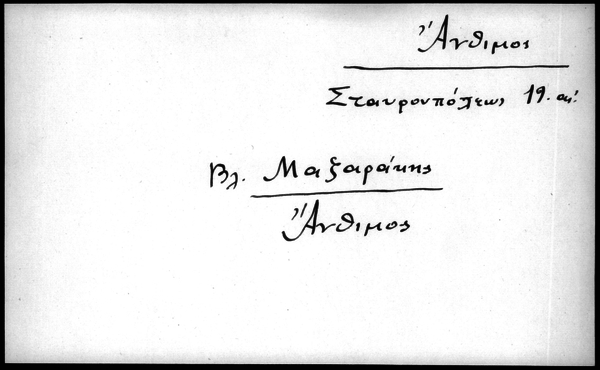 Ἄνθιμος
Σταυρουπόλεως 19. αἰ.
Βλ. Μαζαράκης
Ἄνθιμος